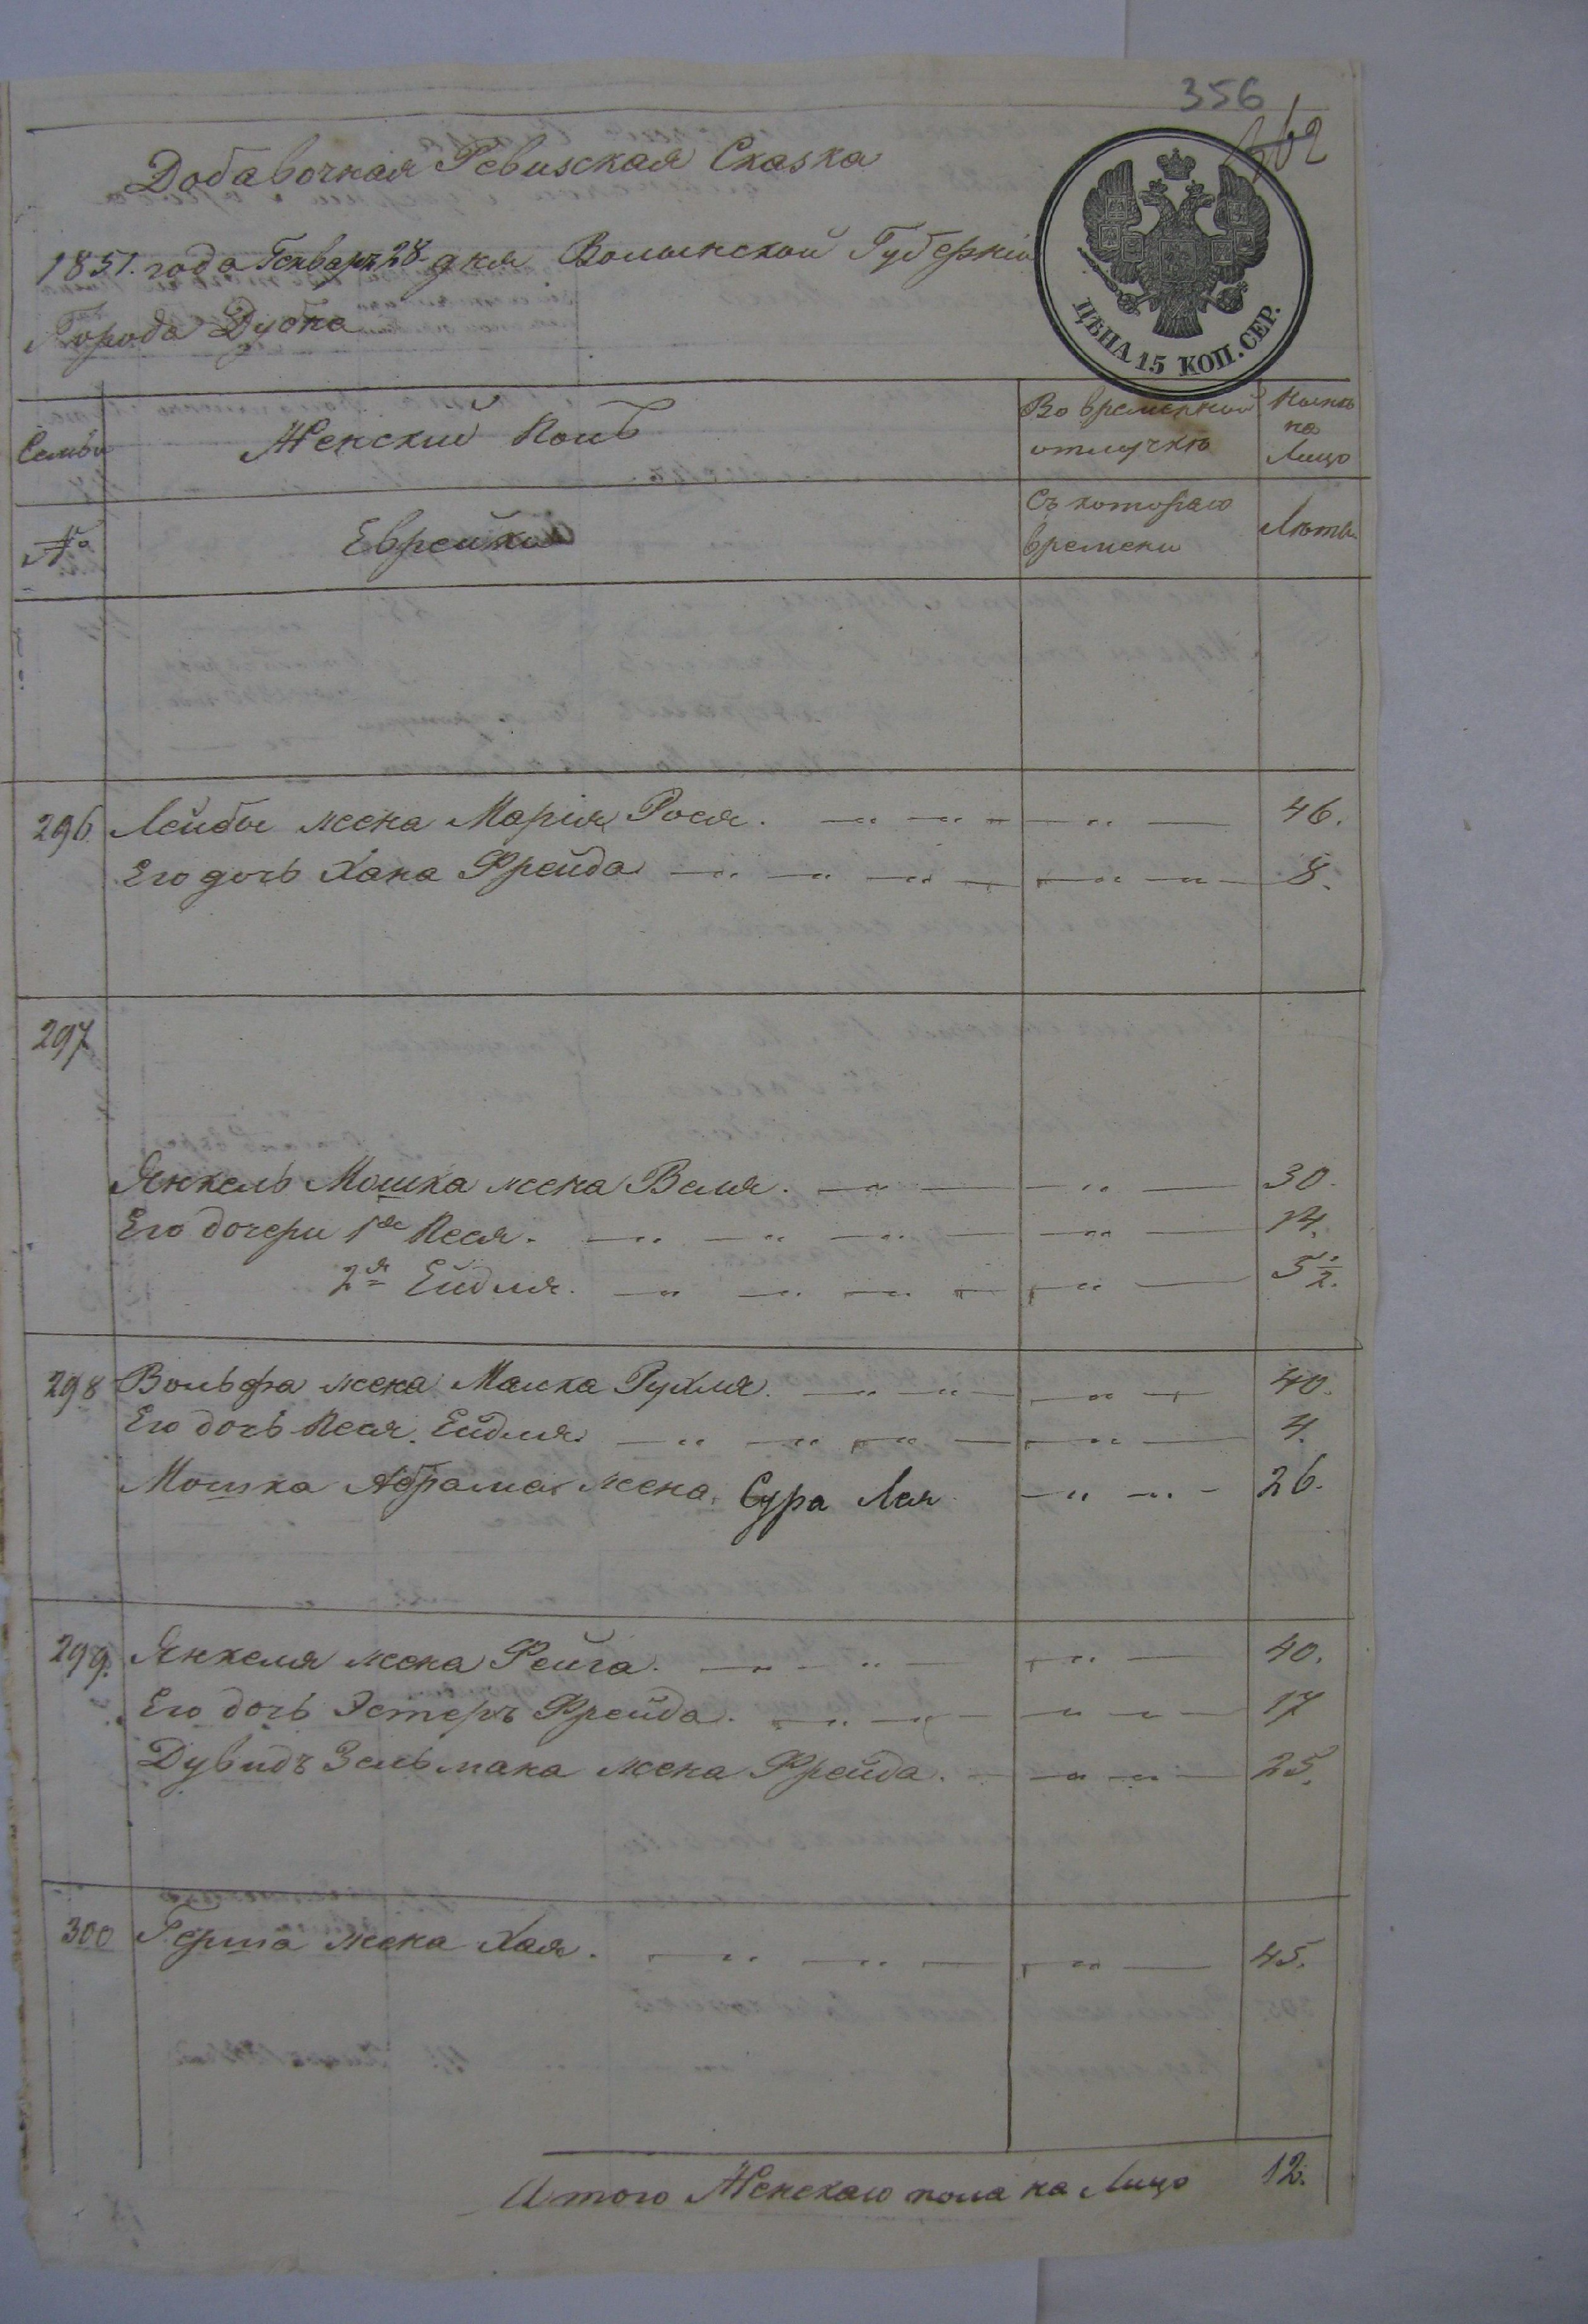 356
362
Добавочная Ревизская Сказка
1851. года Генваря 28 дня Волынской Губерніи
Города Дубна
ЦѢНА 15 КОП. СЕР.
Семьи
Женский Полъ
Во временной отлучкѣ
Нынѣ на Лицо
№
Еврейки
Съ котораго времени
Лѣта.
296. Лейбы жена Марія Рося. 46.
Его дочь Хана Фрейда 8.
297
Янкель Мошка жена Веля. 30.
Его дочери 1я Песя. 14.
2я Ейдля. 5½.
298 Вольфа жена Малка Рухля. 40.
Его дочь Песя Ейдля. 4.
Мошка Абрама жена Сура Лея 26.
299. Янкеля жена Рейга. 40.
Его дочь Эстеръ Фрейда. 17
Дувидъ Зельмана жена Фрейда. 25.
300 Герша жена Хая. 45.
Итого Женскаго пола на Лицо 12.